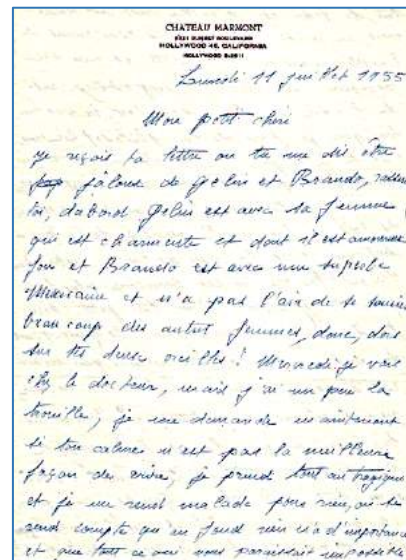 CHATEAU MARMONT
8221 SUNSET BOULEVARD
HOLLYWOOD 46, CALIFORNIA
HOLLYWOOD
Lundi 11 juillet 1955
Mon petit chéri
je reçois ta lettre ou tu me dis être
jalouse de Gelin et Brando, rassure
toi, dabord Gelin est avec sa femme
qui est charmante et dont il est amoureux
fou et Brando est avec une superbe
Mexicaine et n'a pas l'air de se soucier
beaucoup des autres femmes, donc, dors
sur tes deux oreilles! Mercredi je vais
chez le docteur, mais j'ai un peu la
trouille, je me demande maintenant
si ton calme n'est pas la meilleure
façon de vivre, je prend tout au tragique
et je me rend malade pour rien, on se
rend compte qu'au fond rien n'a d'importance
et que tout ce qui vous paraissait